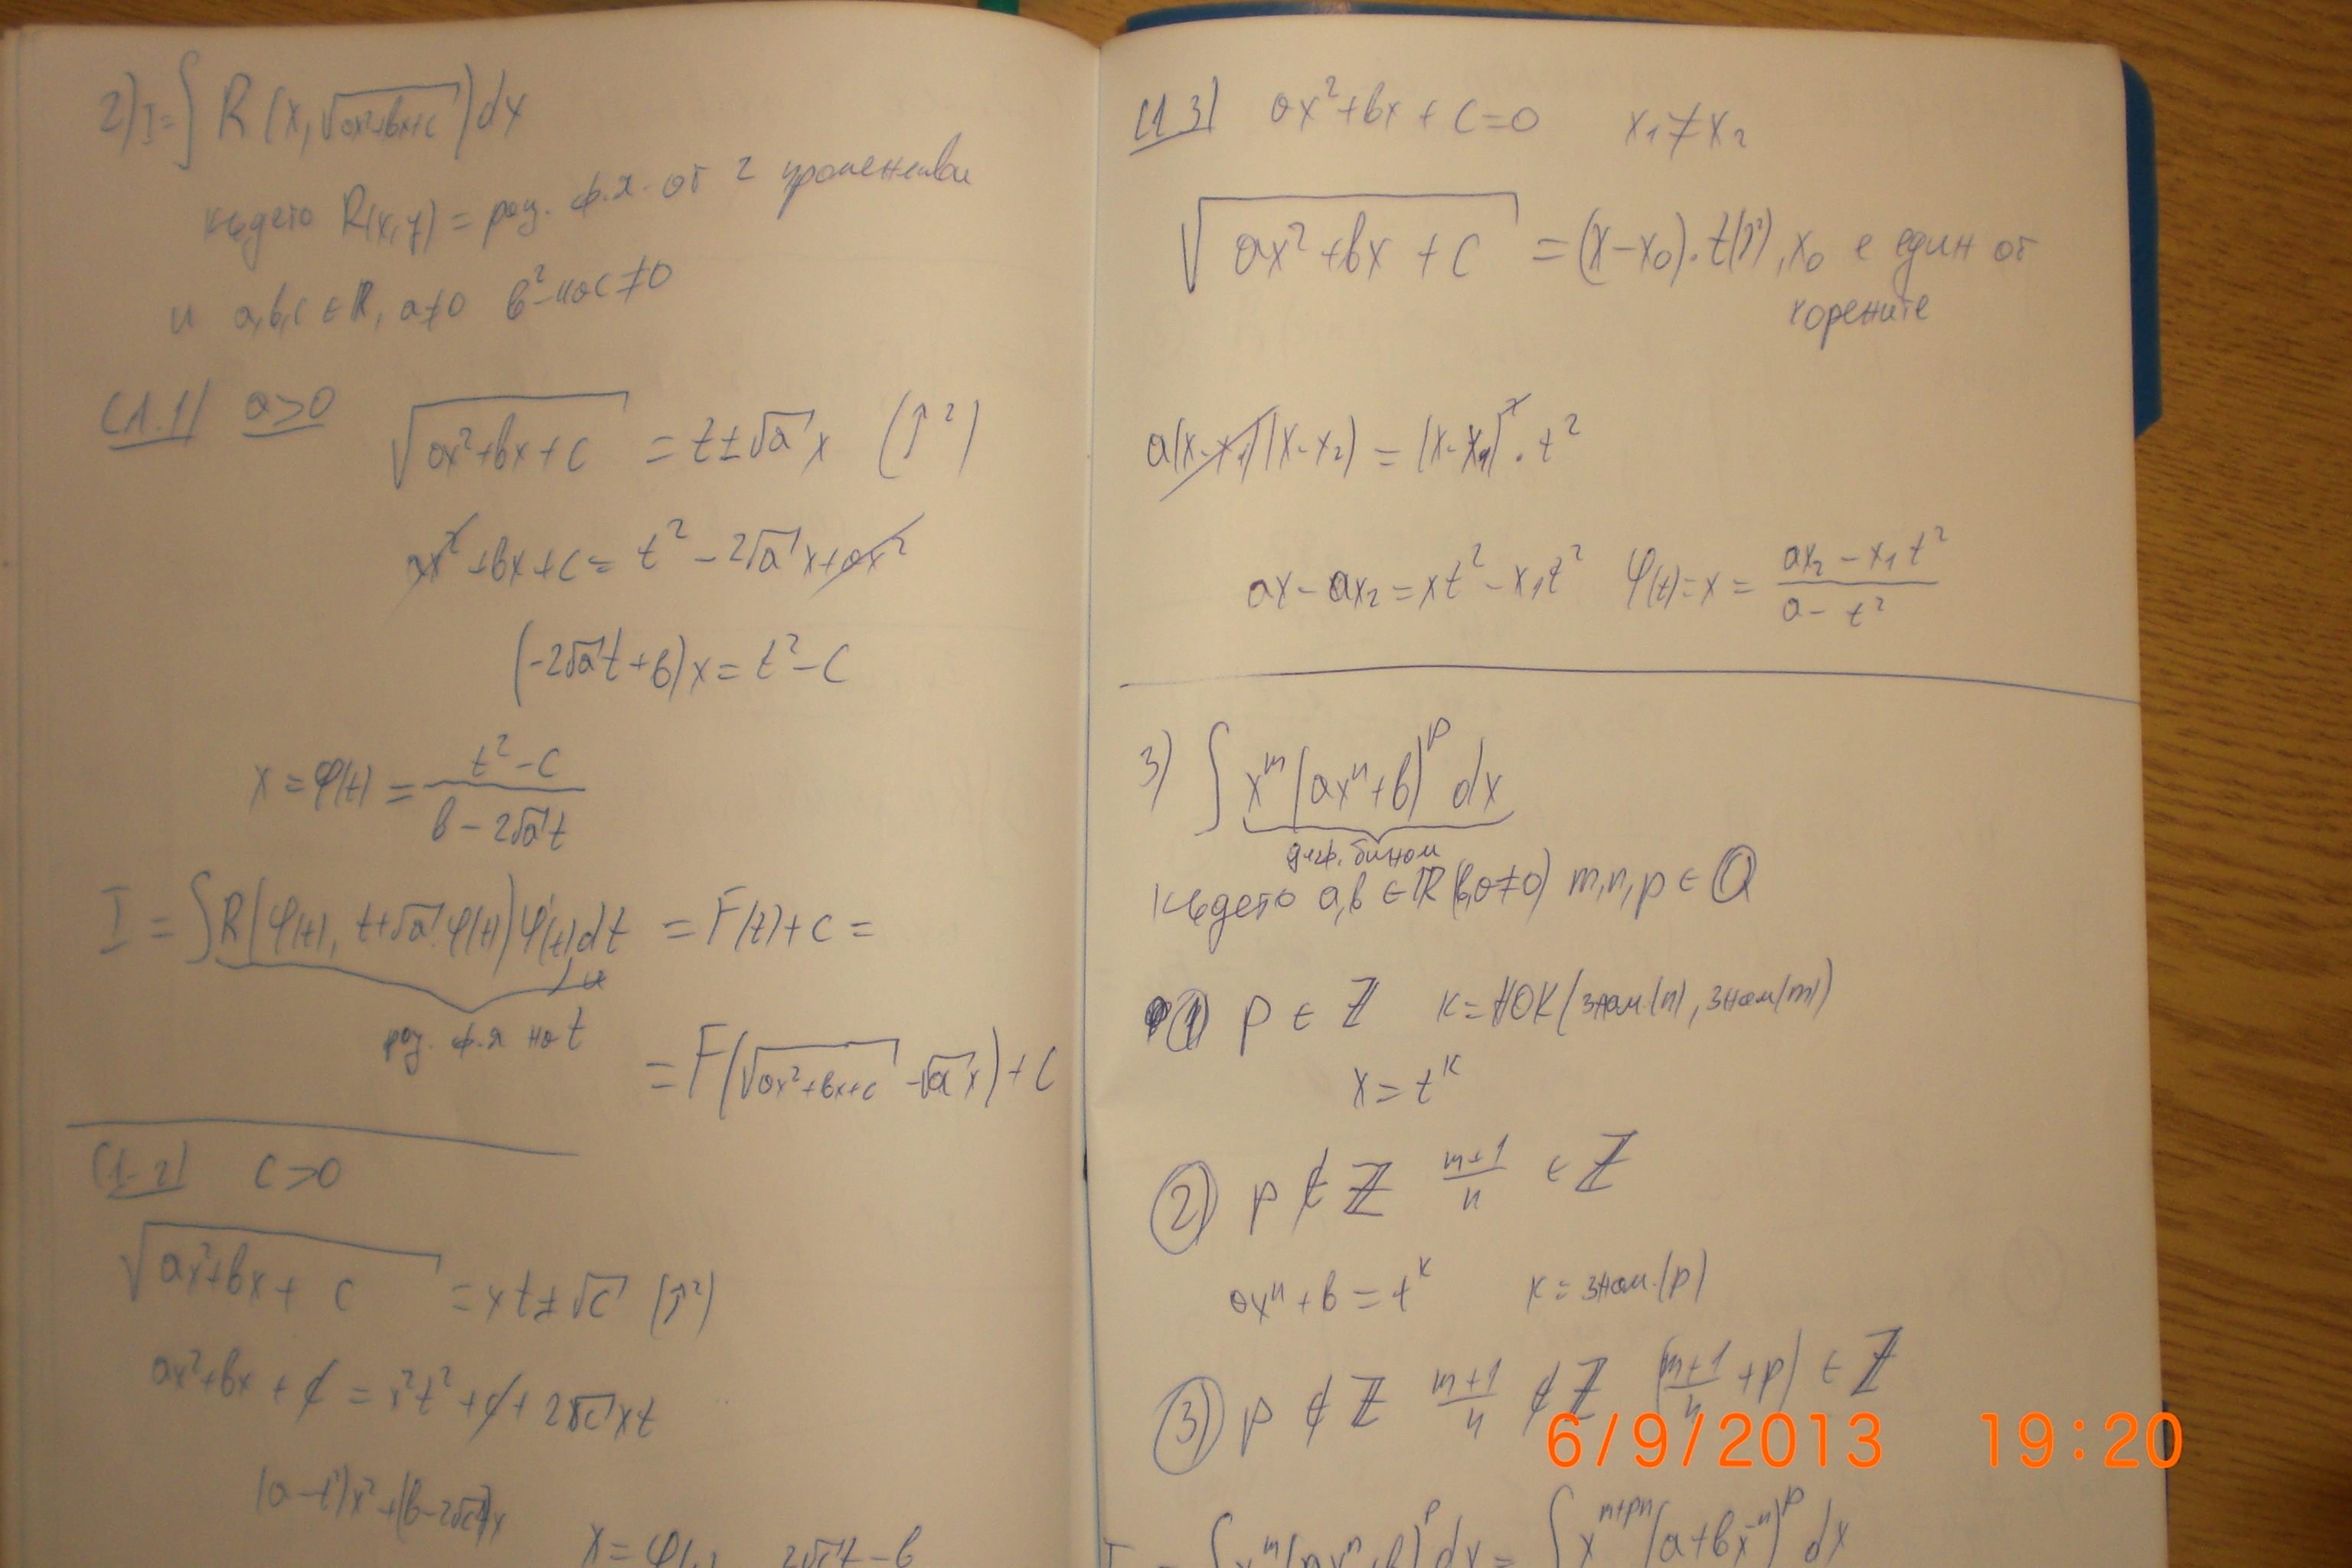 2) I = ∫ R(x, √(ax²+bx+c)) dx
където R(x,y) = рац. ф.я. от 2 променливи
и a,b,c ∈ ℝ, a≠0 b²-4ac≠0
(1.1) a>0 √(ax²+bx+c) = t±√a x (↑²)
ax²+bx+c = t² - 2√a x + ax²
(-2√a t + b)x = t² - c
x = φ(t) = (t² - c)/(b - 2√a t)
I = ∫R(φ(t), t+√a φ(t)) φ'(t) dt = F(t)+c =
рац. ф.я на t
= F(√(ax²+bx+c) - √a x) + C
(1-2) c>0
√(ax²+bx+c) = xt±√c (↑²)
ax²+bx+c = x²t²+c+2√c xt
(a-t²)x²+(b-2√c t)x
(1.3) ax²+bx+c=0 x₁≠x₂
√(ax²+bx+c) = (x-x₀).t(↑²), x₀ е един от
корените
a(x-x₁)(x-x₂) = (x-x₁)².t²
ax-ax₂ = xt²-x₁t² φ(t)=x = (ax₂-x₁t²)/(a-t²)
3) ∫ xᵐ(axⁿ+b)ᵖ dx
диф. бином
където a,b ∈ ℝ (b,a≠0) m,n,p ∈ Q
① p ∈ ℤ k=НОК(знам.(n), знам(m))
x = tᵏ
② p ∉ ℤ (m+1)/n ∈ ℤ
axⁿ+b = tᵏ k = знам.(p)
③ p ∉ ℤ (m+1)/n ∉ ℤ ((m+1)/n + p) ∈ ℤ
6/9/2013 19:20
I = ∫xᵐ(axⁿ+b)ᵖ dx = ∫x^(m+pn)(a+bx⁻ⁿ)ᵖ dx